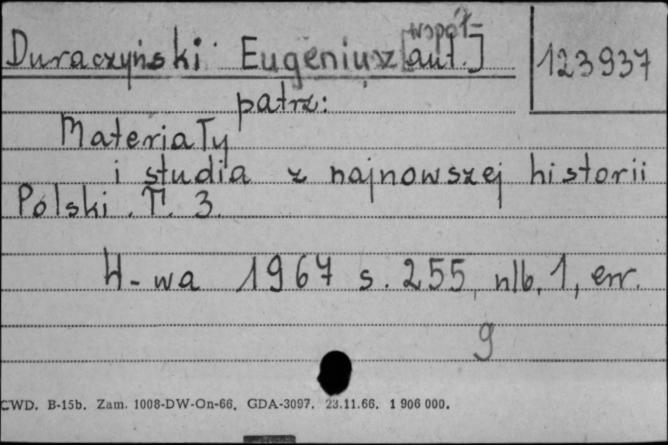 Duraczyński Eugeniusz [współ-
aut.]
123937
patrz:
Materiały
i studia z najnowszej historii
Polski. T. 3.
W-wa 1967 s. 255, nlb. 1, err.
g
CWD. B-15b. Zam. 1008-DW-On-66. GDA-3097. 23.11.66. 1 906 000.